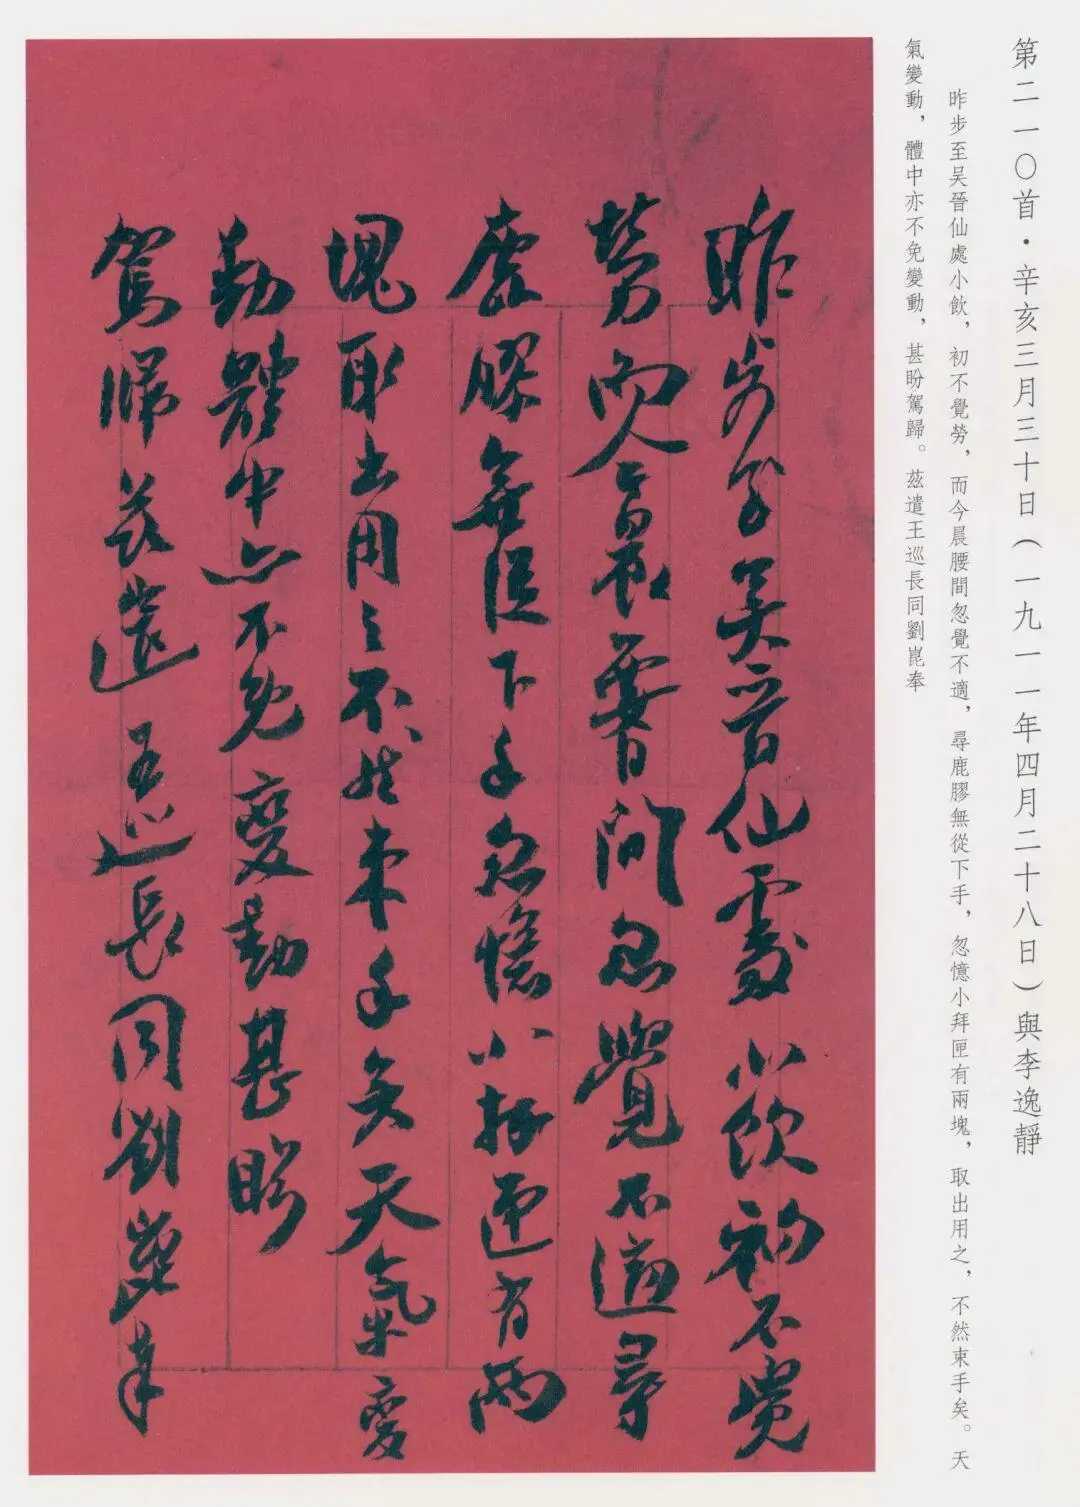 第二一〇首·辛亥三月三十日（一九一一年四月二十八日）與李逸靜
昨步至吴晉仙處小飲，初不覺勞，而今晨腰間忽覺不適，尋鹿膠無從下手，忽憶小拜匣有兩塊，取出用之，不然束手矣。天
氣變動，體中亦不免變動，甚盼駕歸。茲遣王巡長同劉崑奉
昨步至吴晉仙處小飲初不覺
勞而今晨要間忽覺不適尋
鹿膠無從下手忽憶小拜匣有兩
塊取出用之不然束手矣天氣變
動體中亦不免變動甚盼
駕歸茲遣王巡長同劉崑奉